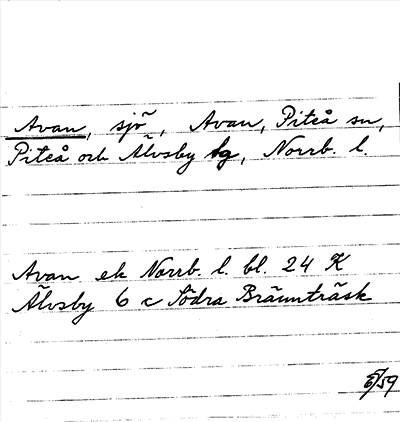 Avan, sjö, Avan, Piteå sn,
Piteå och Älvsby tg, Norrb. l.
Avan ek Norrb. l. bl. 24 K
Älvsby 6 c Södra Bränнträsk
/59